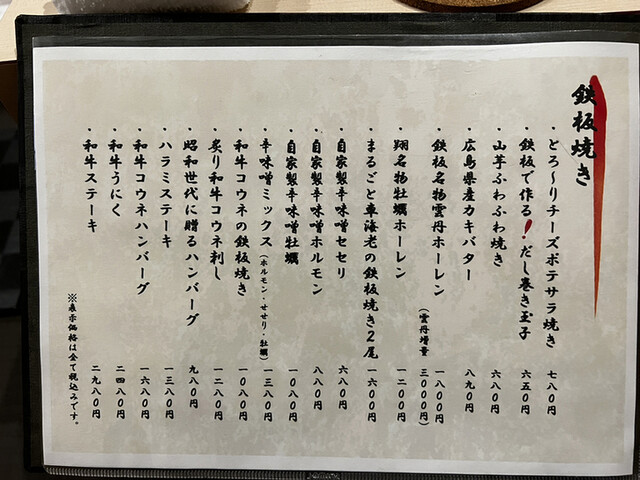 鉄板焼き
・とろ〜りチーズポテサラ焼き 七八〇円
・鉄板で作る!だし巻き玉子 六五〇円
・山芋ふわふわ焼き 六八〇円
・広島県産カキバター 八九〇円
・鉄板名物雲丹ホーレン 一八〇〇円
(雲丹増量 三〇〇〇円)
・翔名物牡蠣ホーレン 一二〇〇円
・まるごと車海老の鉄板焼き2尾 一六〇〇円
・自家製辛味噌セセリ 六八〇円
・自家製辛味噌ホルモン 八八〇円
・自家製辛味噌牡蠣 一〇八〇円
・辛味噌ミックス(ホルモン・せせり・牡蠣) 一三八〇円
・和牛コウネの鉄板焼き 一〇八〇円
・炙り和牛コウネ刺し 一二八〇円
・昭和世代に贈るハンバーグ 九八〇円
・ハラミステーキ 一三八〇円
・和牛コウネハンバーグ 一六八〇円
・和牛うにく 二四八〇円
・和牛ステーキ 二九八〇円
※表示価格は全て税込みです。